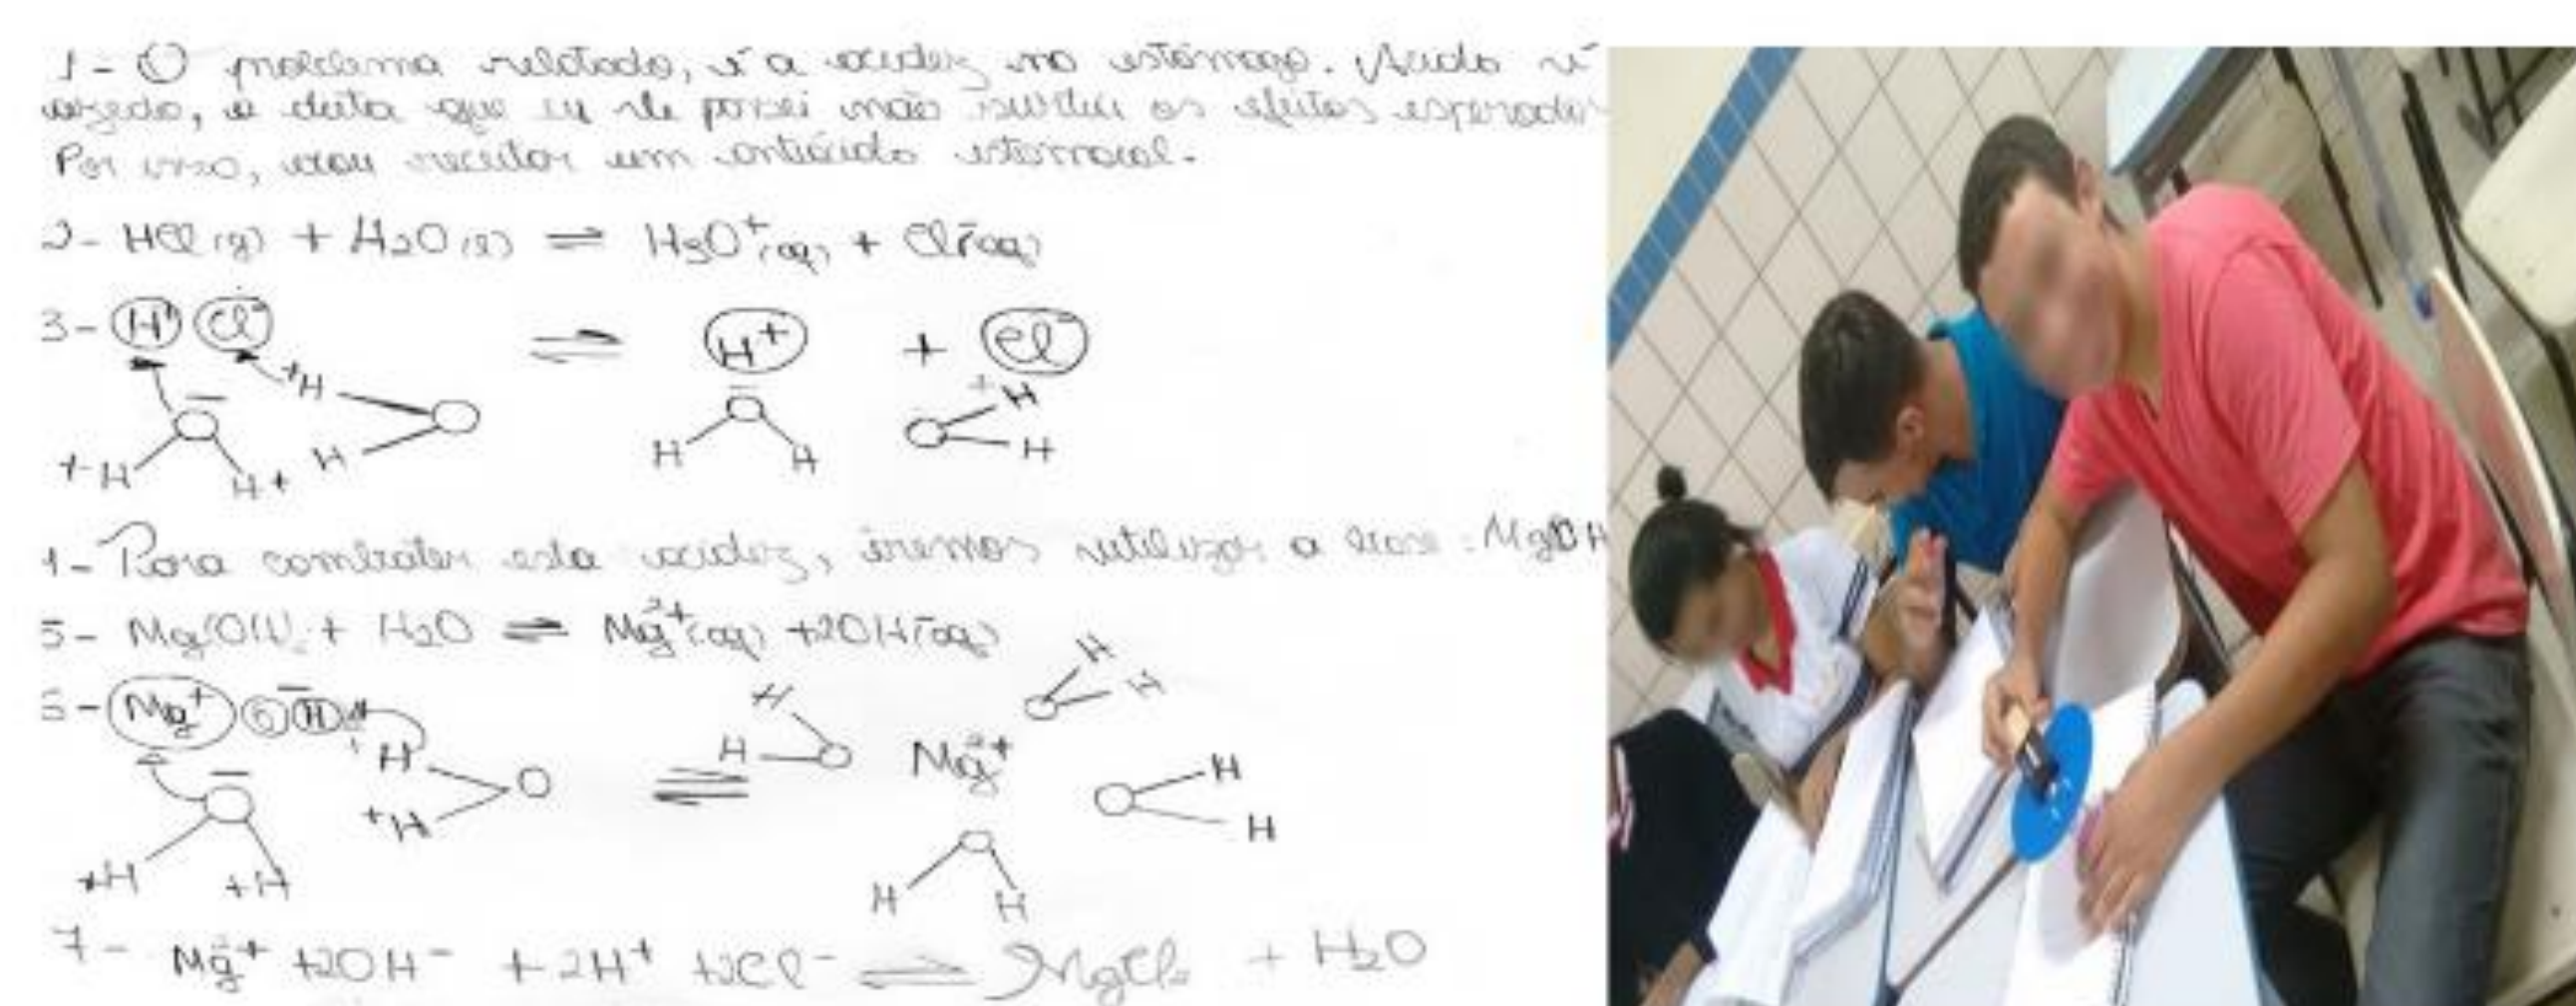 1 - O problema relatado, é a acidez no estômago. Ácido é
azedo, a dieta que eu lhe passei não surtiu os efeitos esperados
Por isso, vou receitar um antiácido estomacal.
2 - HCl(g) + H2O(l) ⇌ H3O+(aq) + Cl-(aq)
3 - H+ Cl- ⇌ H+ + Cl-
+H O - O + H
+H H+ H H H O H
1 - Para combater esta acidez, iremos utilizar a base: MgOH
5 - Mg(OH)2 + H2O ⇌ Mg2+(aq) + 2OH-(aq)
H H
5 - Mg+ O H - H O H O
+H O ⇌ H O Mg2+ O H
+H O H
+H +H H H
7 - Mg2+ + 2OH- + 2H+ + 2Cl- ⇌ MgCl2 + H2O